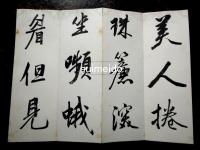 美人捲
珠簾深
坐嚬蛾
眉但見
suimeido